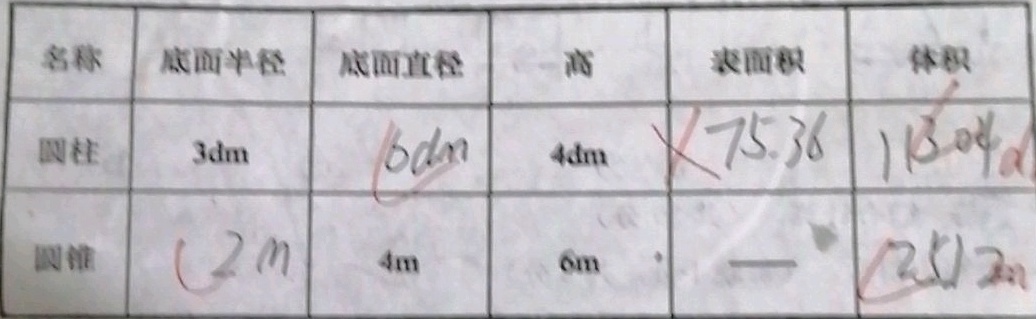 名称 底面半径 底面直径 高 表面积 体积
圆柱 3dm 6dm 4dm 75.36 113.04 d
圆锥 2m 4m 6m — 25.12 m